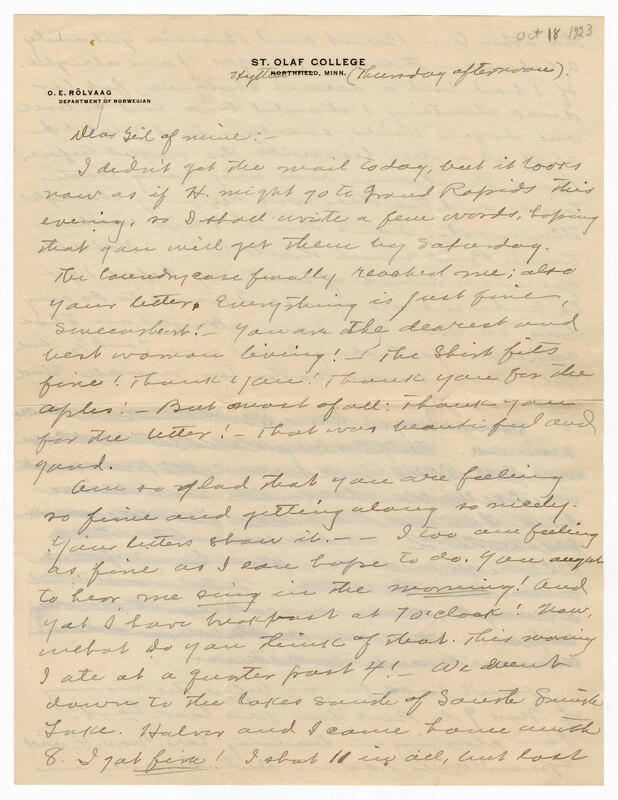 Oct 18 1923
ST. OLAF COLLEGE
NORTHFIELD, MINN. (Thursday afternoon).
O. E. RÖLVAAG
DEPARTMENT OF NORWEGIAN
Dear Girl of mine:-
I didn't get the mail today, but it looks
now as if H. might go to Grand Rapids this
evening, so I shall write a few words, hoping
that you will get them by Saturday.
The laundrycase finally reached me; also
your letter. Everything is just fine,
Sweetheart! - You are the dearest and
best woman living! - The Shirt fits
fine! Thank you! Thank you for the
aples! - But most of all: Thank you
for the letter! - That was beautiful and
good.
Am so glad that you are feeling
so fine and getting along so nicely.
Your letters show it. - - I too am feeling
as fine as I can hope to do. You ought
to hear me sing in the morning! And
yet I have breakfast at 7 o'clock! Now,
what do you think of that. This morning
I ate at a quarter past 4! - We went
down to the lakes south of South
Lake. Halvor and I came home with
8. I got five! I shot 11 in all, but lost